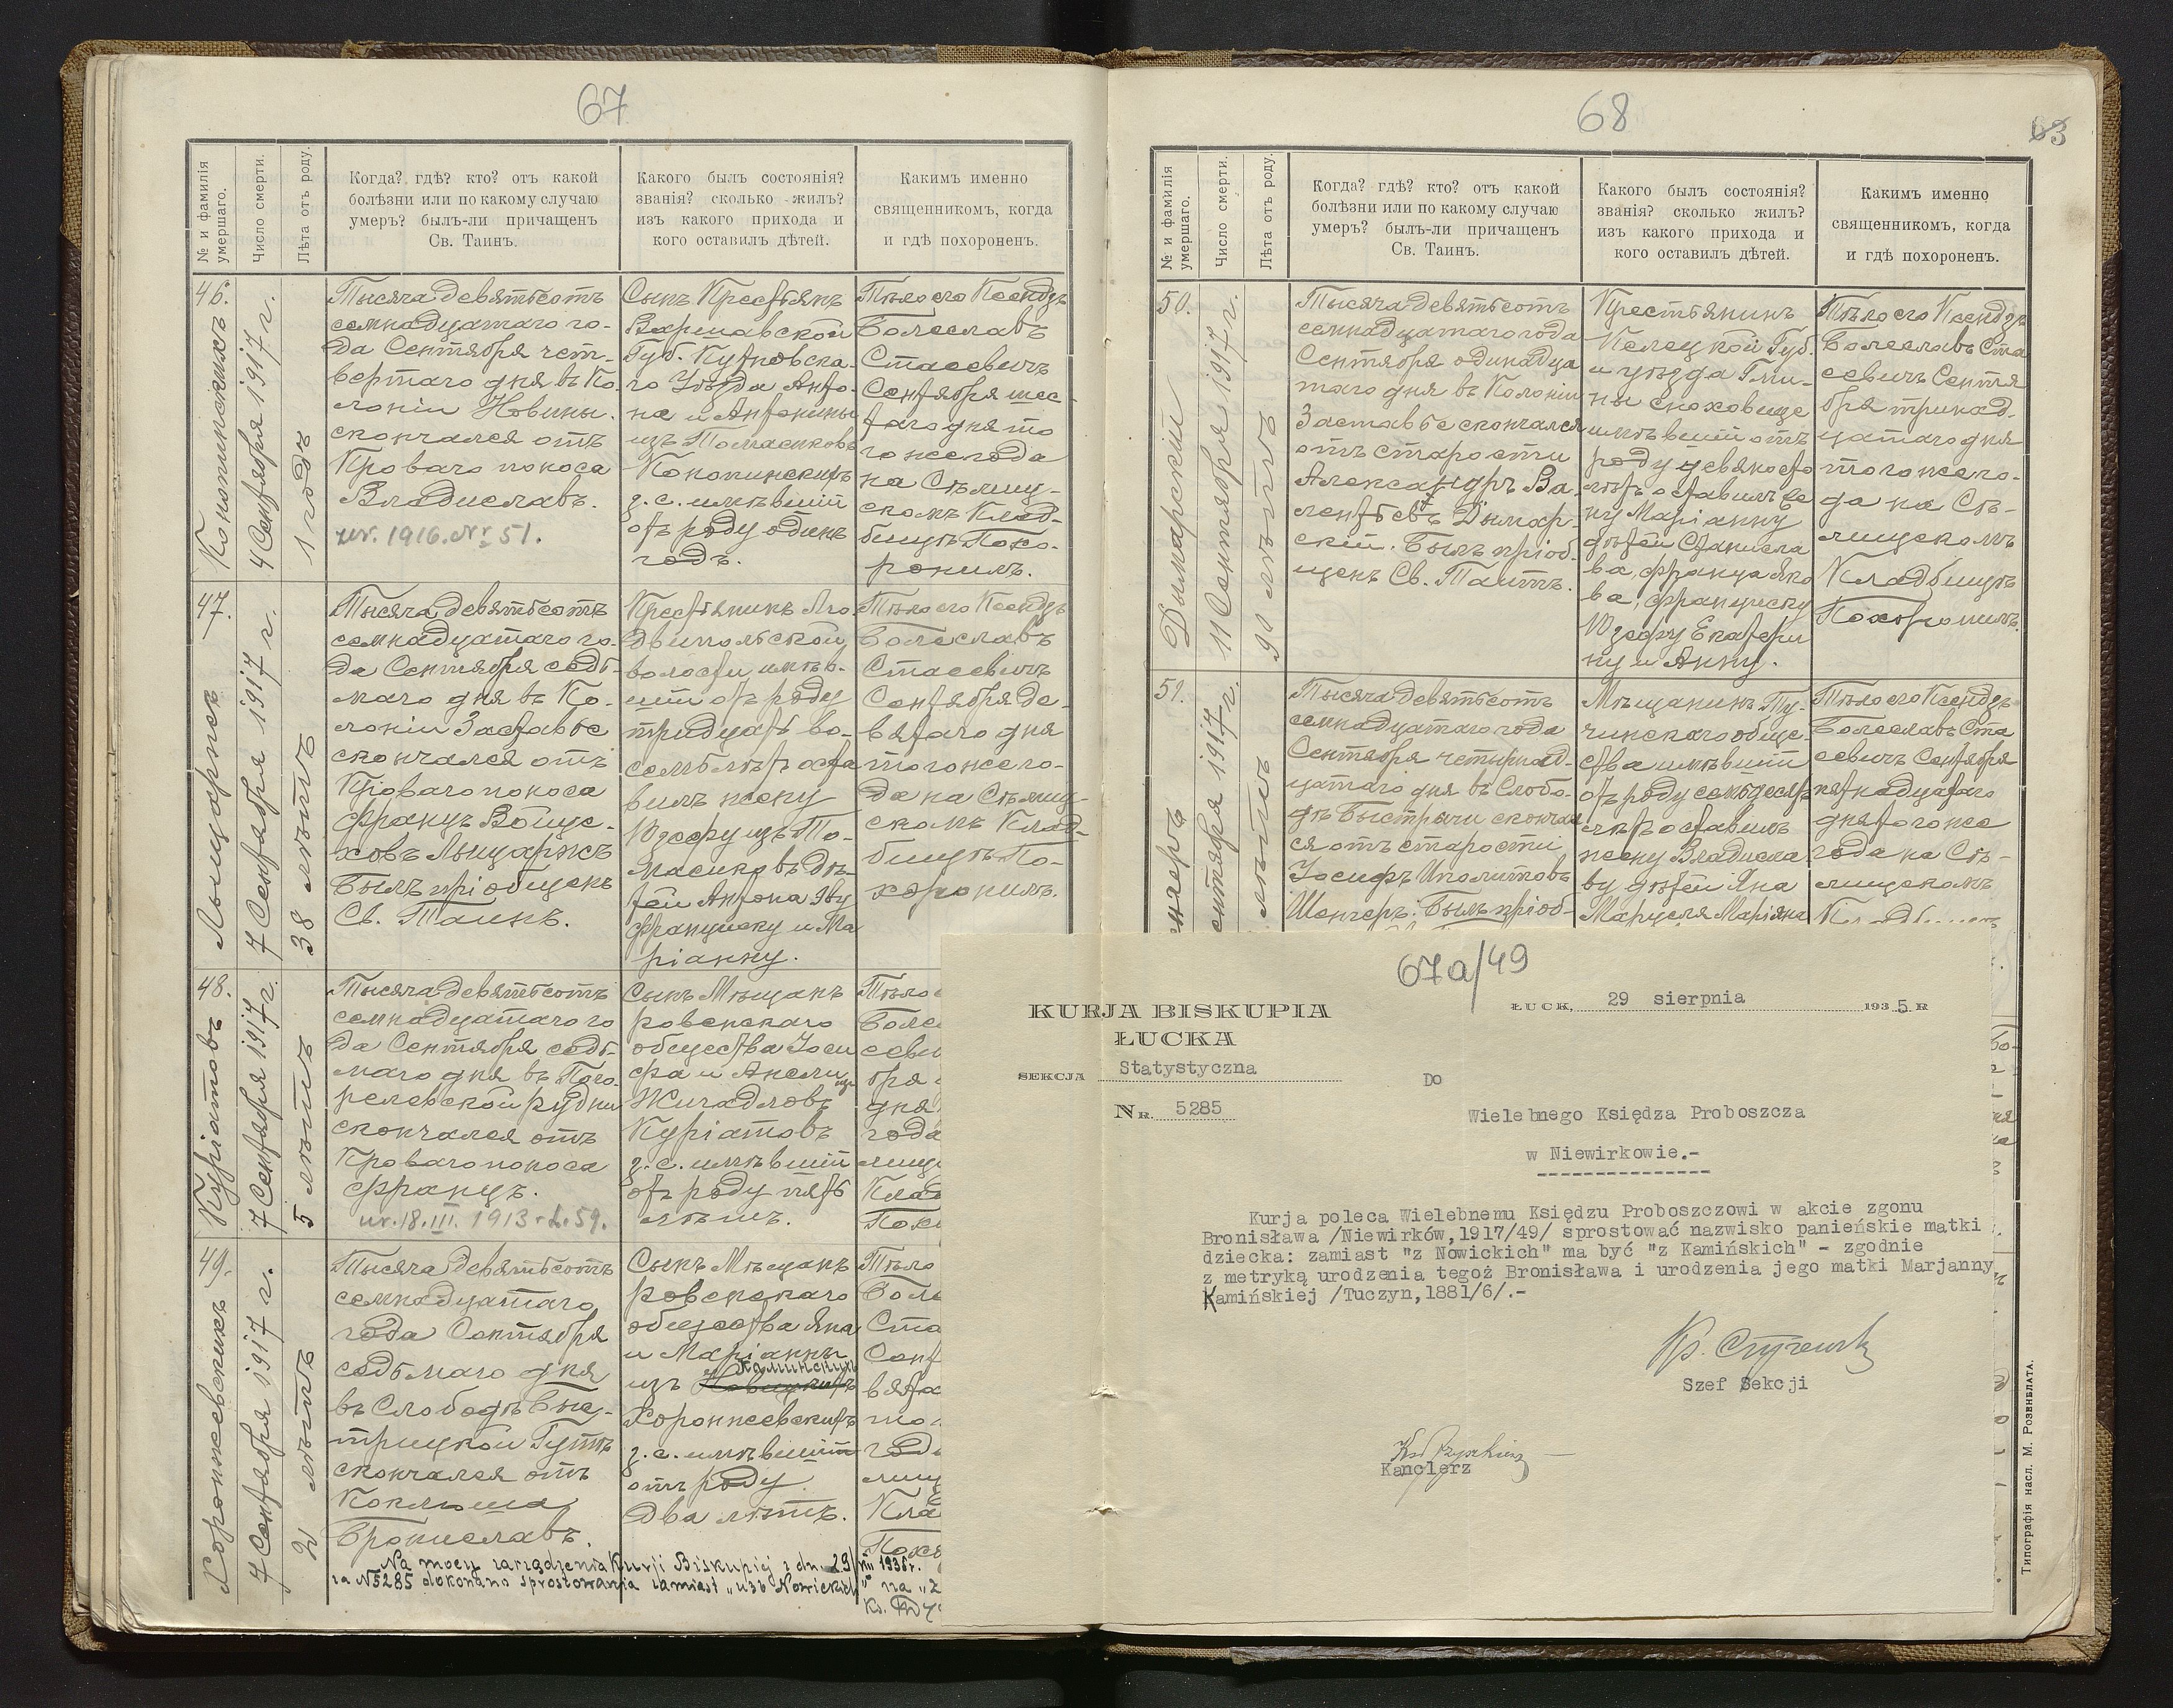 67
№ и фамилія умершаго.
Число смерти.
Лѣта отъ роду.
Когда? гдѣ? кто? отъ какой
болѣзни или по какому случаю
умеръ? былъ-ли причащенъ
Св. Таинъ.
Какого былъ состоянія?
званія? сколько жилъ?
изъ какого прихода и
кого оставилъ дѣтей.
Какимъ именно
священникомъ, когда
и гдѣ похороненъ.
46.
Конопинскихъ
4 Сентября 1917 г.
1 годъ
Тысяча девятьсотъ
семнадцатаго го-
да Сентября чет-
вертаго дня въ Ко-
лоніи Новины.
скончался отъ
Кроваго поноса
Владиславъ.
ur. 1916. Nr 51.
Сынъ Крестьянъ
Варшавской
Губ. Кутновска-
го Уѣзда Анто-
на и Антонины
изъ Томасиковъ
Конопинскихъ
з. с. имѣвшій
отъ роду одинъ
годъ.
Тѣло его Ксендзъ
Болеславъ
Стасевичъ
Сентября шес-
таго дня то
го же года
на Сѣлищ-
скомъ Клад-
бищѣ Похо-
ронилъ.
47.
Лыщаржъ
7 Сентября 1917 г.
38 лѣтъ
Тысяча девятьсотъ
семнадцатаго го-
да Сентября седь-
маго дня въ Ко-
лоніи Заставье
скончался отъ
Кроваго поноса
Францъ Войце-
ховъ Лыщаржъ
Былъ пріобщенъ
Св. Таинъ.
Крестьянинъ Люд
двипольской
волости имѣв-
шій отъ роду
тридцать во-
семь лѣтъ оста
вилъ жену
Юзефу изъ То-
масиковъ дѣ-
тей Антона Эву
Францишку и Ма
ріанну.
Тѣло его Ксендзъ
Болеславъ
Стасевичъ
Сентября де-
вятаго дня
того же го-
да на Сѣлищ-
скомъ Клад-
бищѣ По-
хоронилъ.
48.
Куріатовъ
7 Сентября 1917 г.
5 лѣтъ
Тысяча девятьсотъ
семнадцатаго го
да Сентября седь-
маго дня въ Пого-
релевской рудни
скончался отъ
Кроваго поноса
Францъ.
ur. 18. III. 1913 r. L. 59.
Сынъ Мѣщанъ
ровенскаго
общества Іоси
фа и Анели изъ
Жигадловъ
Куріатовъ
з. с. имѣвшій
отъ роду пять
лѣтъ.
Тѣло
49.
Хоронжевскихъ
7 Сентября 1917 г.
2 лѣтъ
Тысяча девятьсотъ
семнадцатаго
года Сентября
седьмаго дня
въ Слободѣ Быс-
трицкой Гутѣ
скончался отъ
Коклюша
Брониславъ.
Сынъ Мѣщанъ
ровенскаго
общества Яна
и Маріанны
Каминскихъ
изъ Новицкихъ
Хоронжевскихъ
з. с. имѣвшій
отъ роду
два лѣтъ.
Тѣло
Na mocy zarządzenia Kurji Biskupiej z dn. 29/VIII 1935 r.
za N 5285 dokonano sprostowania zamiast „изъ Nowickich" na „z
68
63
№ и фамилія умершаго.
Число смерти.
Лѣта отъ роду.
Когда? гдѣ? кто? отъ какой
болѣзни или по какому случаю
умеръ? былъ-ли причащенъ
Св. Таинъ.
Какого былъ состоянія?
званія? сколько жилъ?
изъ какого прихода и
кого оставилъ дѣтей.
Какимъ именно
священникомъ, когда
и гдѣ похороненъ.
50.
Дымарскій
11 Сентября 1917 г.
90 лѣтъ
Тысяча девятьсотъ
семнадцатаго года
Сентября одинадца
таго дня въ Колоніи
Заставье скончался
отъ старости
Александръ Ва-
лентьевъ Дымар-
скій. Былъ пріоб-
щенъ Св. Таинъ.
Крестьянинъ
Келецкой Губ.
и уѣзда Гми-
ны Снохови​це
имѣвшій отъ
роду девяносто
лѣтъ оставилъ же
ну Маріанну
дѣтей Станисла
ва, Франца Яко
ва, Францишку
Юзефу Екатери
ну и Анну.
Тѣло его Ксендзъ
Болеславъ Ста
севичъ Сентя
бря тринад-
цатаго дня
того же го-
да на Сѣ-
лищскомъ
Кладбищѣ
Похоронилъ.
51.
Тысяча девятьсотъ
семнадцатаго года
Сентября четырнад-
цатаго дня въ Слобо-
дѣ Быстричи скончал
ся отъ старости
Іосифъ Иполитовъ
Шенгеръ. Былъ пріоб-
Мѣщанинъ Ту-
чинскаго обще-
ства имѣвшій
отъ роду семьдесятъ
лѣтъ оставилъ
жену Владисла
ву дѣтей Яна
Марцеля Маріана
Тѣло его Ксендзъ
Болеславъ Ста
севичъ Сентября
пятнадцатаго
дня того же
года на Сѣ-
лищскомъ
67a/49
KURJA BISKUPIA
ŁUCKA
SEKCJA Statystyczna
NR. 5285
ŁUCK, 29 sierpnia 1935 R
Do
Wielebnego Księdza Proboszcza
w Niewirkowie.-
Kurja poleca Wielebnemu Księdzu Proboszczowi w akcie zgonu
Bronisława /Niewirków,1917/49/ sprostować nazwisko panieńskie matki
dziecka: zamiast "z Nowickich" ma być "z Kamińskich" - zgodnie
z metryką urodzenia tegoż Bronisława i urodzenia jego matki Marjanny
Kamińskiej /Tuczyn,1881/6/.-
Szef Sekcji
Kanclerz
Типографія насл. М. Розенблата.